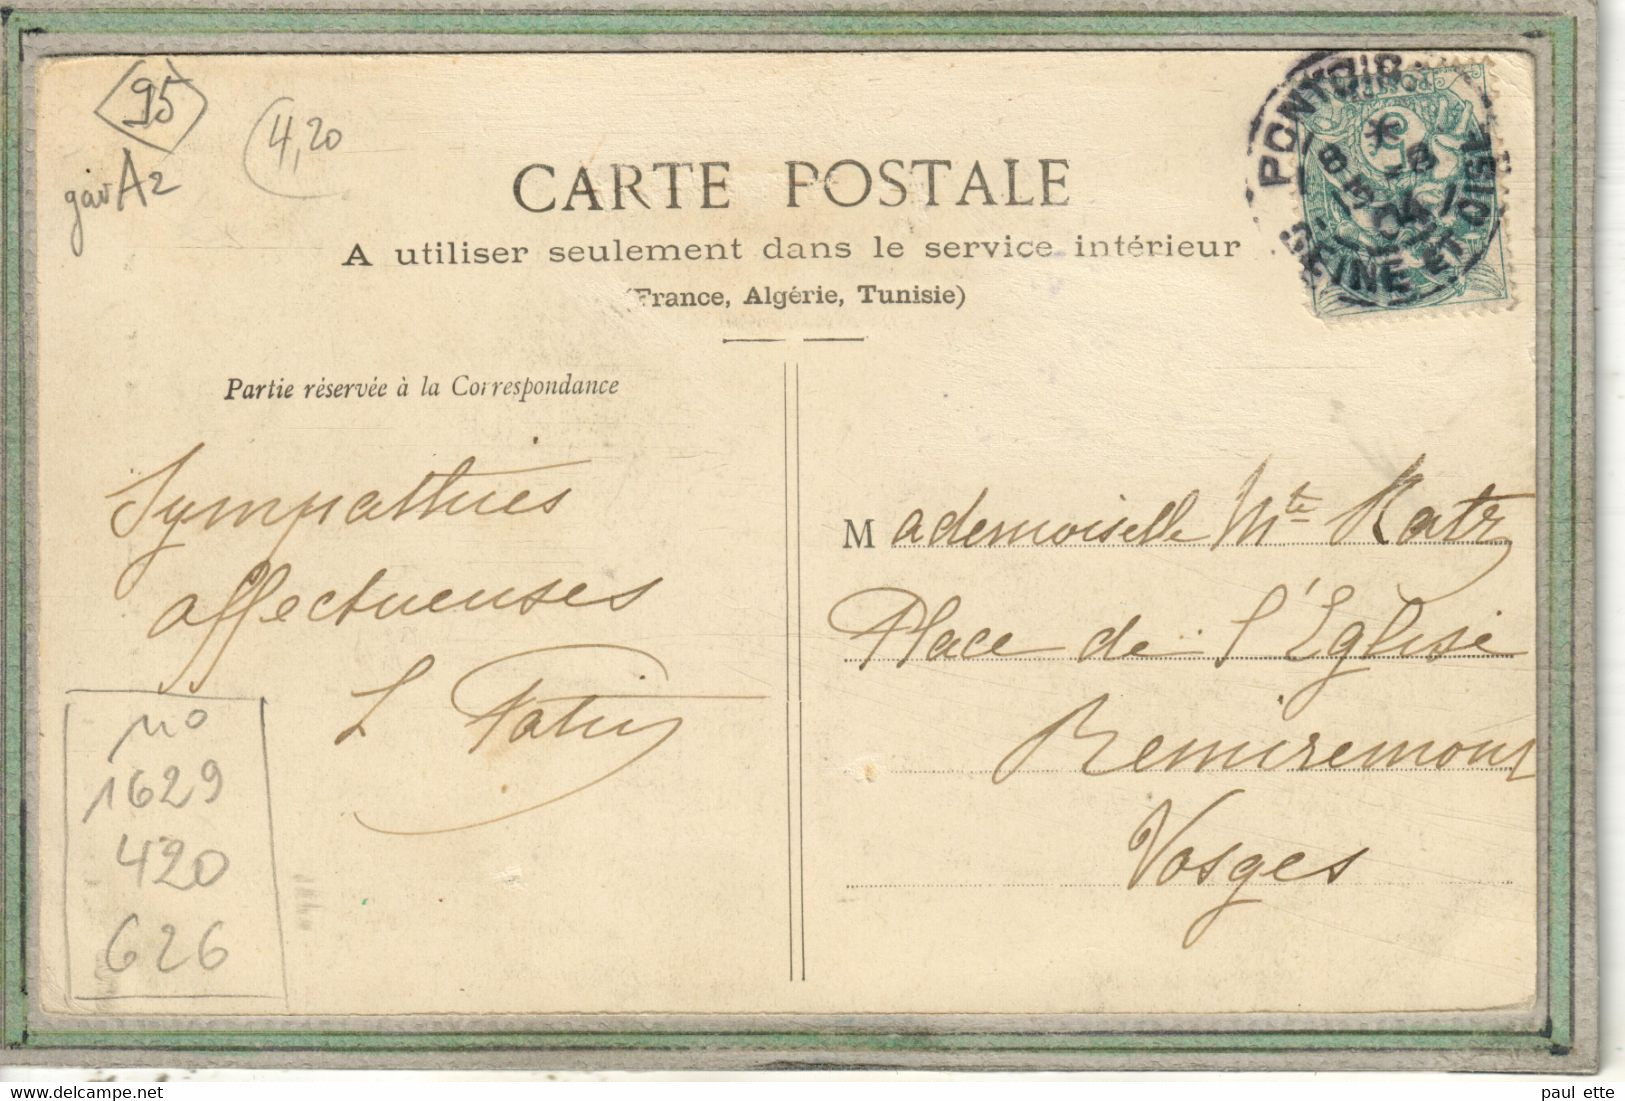 95
4,20
gav A2
CARTE POSTALE
A utiliser seulement dans le service intérieur
(France, Algérie, Tunisie)
PONTOISE
SEINE ET OISE
Partie réservée à la Correspondance
Sympathies
affectueuses
Mademoiselle Mte Katz
Place de l'Eglise
Remiremont
Vosges
no
1629
420
626
delcampe.net
paul ette